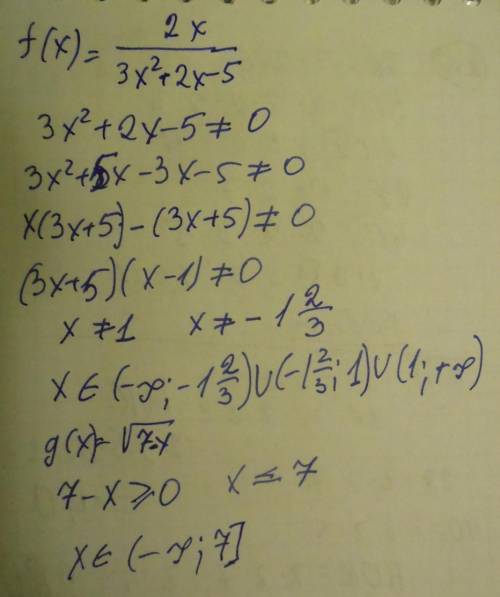 f(x) = 2x / 3x²+2x-5
3x²+2x-5≠0
3x²+5x-3x-5≠0
x(3x+5)-(3x+5)≠0
(3x+5)(x-1)≠0
x≠1 x≠-1 2/3
x∈(-∞;-1 2/3)∪(-1 2/3;1)∪(1;+∞)
g(x)=√7-x
7-x≥0 x≤7
x∈(-∞;7]